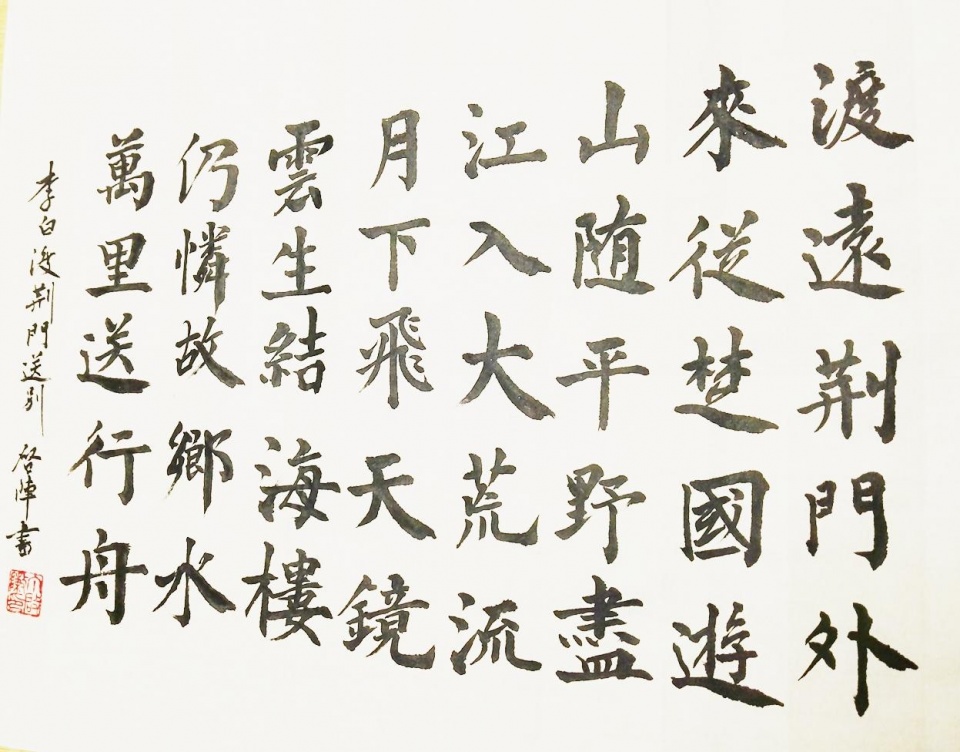 渡遠荆門外
來從楚國遊
山随平野盡
江入大荒流
月下飛天鏡
雲生結海樓
仍憐故鄉水
萬里送行舟
李白渡荆門送别 啓陣書